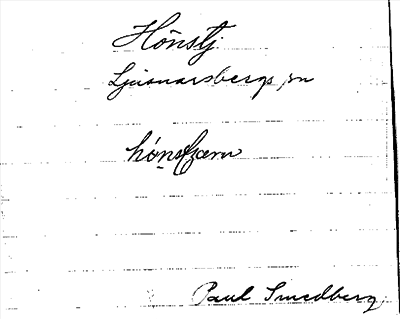 Hönstj.
Ljusnarsbergs sn
Paul Smedberg